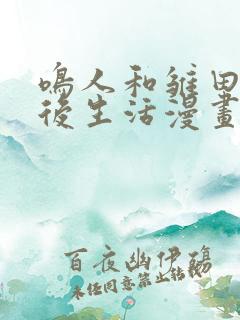 鳴人和雛田
後生活漫畫
百夜幽伊殤
未经同意禁止转载